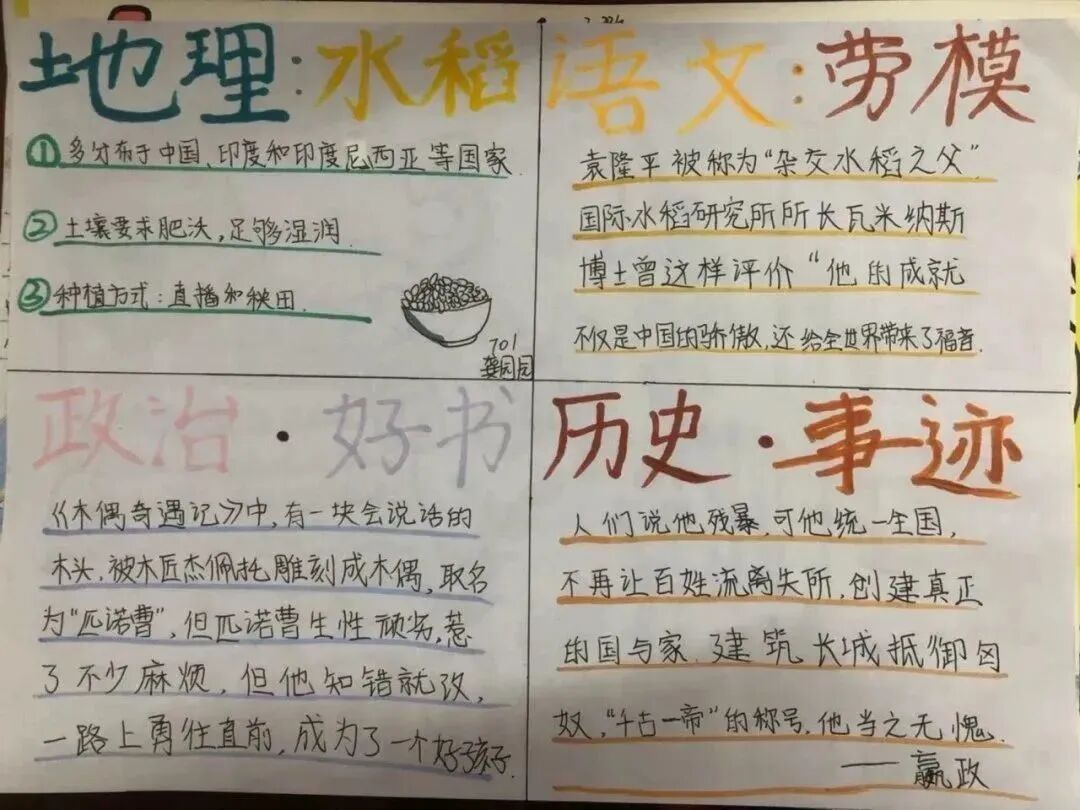 地理:水稻
①多分布于中国、印度和印度尼西亚等国家.
②土壤要求肥沃,足够湿润.
③种植方式:直播和秧田.
701
龚园园
语文:劳模
袁隆平被称为“杂交水稻之父”
国际水稻研究所所长瓦米纳斯
博士曾这样评价“他的成就
不仅是中国的骄傲,还给全世界带来了福音.
政治·好书
《木偶奇遇记》中,有一块会说话的
木头,被木匠杰佩托雕刻成木偶,取名
为“匹诺曹”,但匹诺曹生性顽劣,惹
了不少麻烦,但他知错就改,
一路上勇往直前,成为了一个好孩子.
历史·事迹
人们说他残暴,可他统一全国,
不再让百姓流离失所,创建真正
的国与家.建筑长城抵御匈
奴,“千古一帝”的称号,他当之无愧.
——嬴政